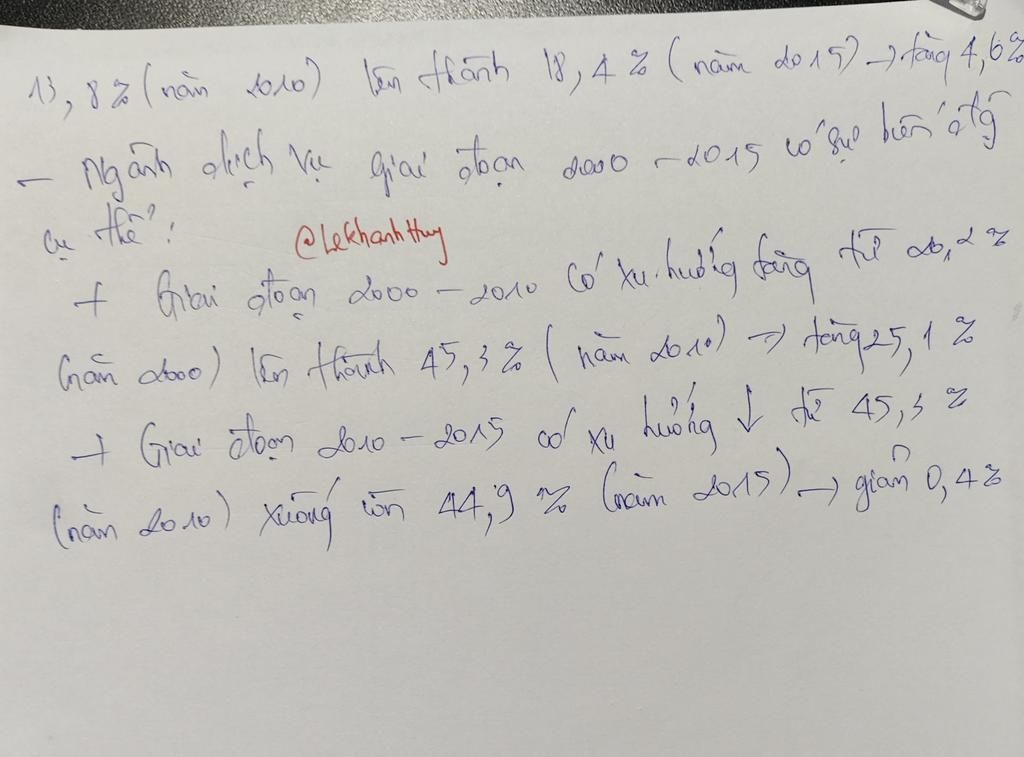 13,8% (năm 2010) lên thành 18,4% (năm 2015) → tăng 4,6%
- Ngành dịch vụ giai đoạn 2000 - 2015 có sự biến đtg
cụ thể:
@Lekhanhthuy
+ Giai đoạn 2000 - 2010 có xu hướng tăng từ 20,2%
(năm 2000) lên thành 45,3% (năm 2010) → tăng 25,1%
+ Giai đoạn 2010 - 2015 có xu hướng ↓ từ 45,3%
(năm 2010) xuống còn 44,9% (năm 2015) → giảm 0,4%